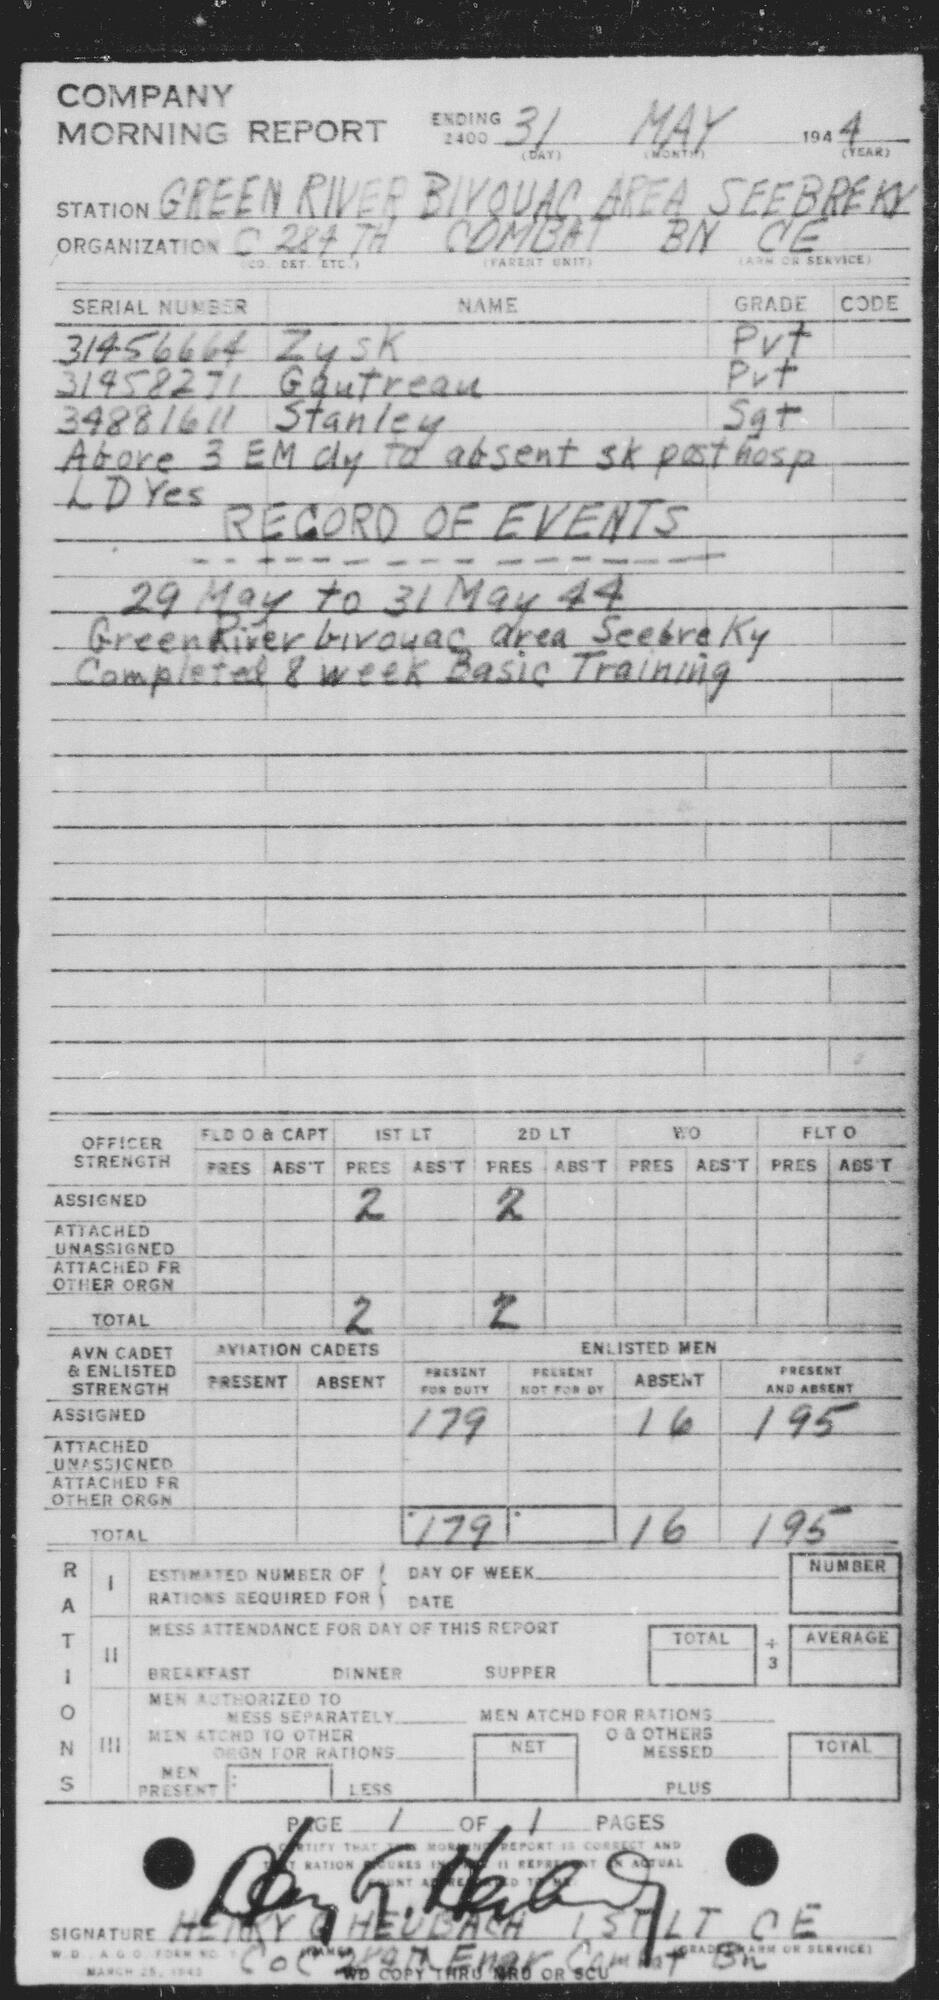 COMPANY
MORNING REPORT ENDING 2400 31 MAY 1944
(DAY) (MONTH) (YEAR)
STATION GREEN RIVER BIVOUAC AREA SEEBREKY
ORGANIZATION C 284TH COMBAT BN CE
(CO. DET. ETC.) (PARENT UNIT) (ARM OR SERVICE)
SERIAL NUMBER NAME GRADE CODE
31456664 Zysk Pvt
31458271 Gautreau Pvt
34881611 Stanley Sgt
Above 3 EM dy to absent sk post hosp
LD Yes
RECORD OF EVENTS
29 May to 31 May 44
Green River bivouac area Seebre Ky
Completed 8 week Basic Training
OFFICER STRENGTH FLD O & CAPT 1ST LT 2D LT WO FLT O
PRES ABS'T PRES ABS'T PRES ABS'T PRES ABS'T PRES ABS'T
ASSIGNED 2 2
ATTACHED UNASSIGNED
ATTACHED FR OTHER ORGN
TOTAL 2 2
AVN CADET & ENLISTED STRENGTH AVIATION CADETS ENLISTED MEN
PRESENT ABSENT PRESENT FOR DUTY PRESENT NOT FOR DY ABSENT PRESENT AND ABSENT
ASSIGNED 179 16 195
ATTACHED UNASSIGNED
ATTACHED FR OTHER ORGN
TOTAL 179 16 195
RATIONS
I ESTIMATED NUMBER OF RATIONS REQUIRED FOR DAY OF WEEK DATE NUMBER
II MESS ATTENDANCE FOR DAY OF THIS REPORT TOTAL ÷ 3 AVERAGE
BREAKFAST DINNER SUPPER
III MEN AUTHORIZED TO MESS SEPARATELY MEN ATCHD FOR RATIONS
MEN ATCHD TO OTHER ORGN FOR RATIONS NET O & OTHERS MESSED TOTAL
MEN PRESENT LESS PLUS
PAGE 1 OF 1 PAGES
I CERTIFY THAT THIS MORNING REPORT IS CORRECT AND
THAT RATION FIGURES IN II REPRESENT AN ACTUAL
COUNT AS REPORTED TO ME.
SIGNATURE HENRY G HEUBACH 1ST LT CE
W. D., A. G. O. FORM NO. 1 (NAME) (GRADE) (ARM OR SERVICE)
MARCH 25, 1943 Co C 284th Engr Combat Bn
WD COPY THRU MRU OR SCU